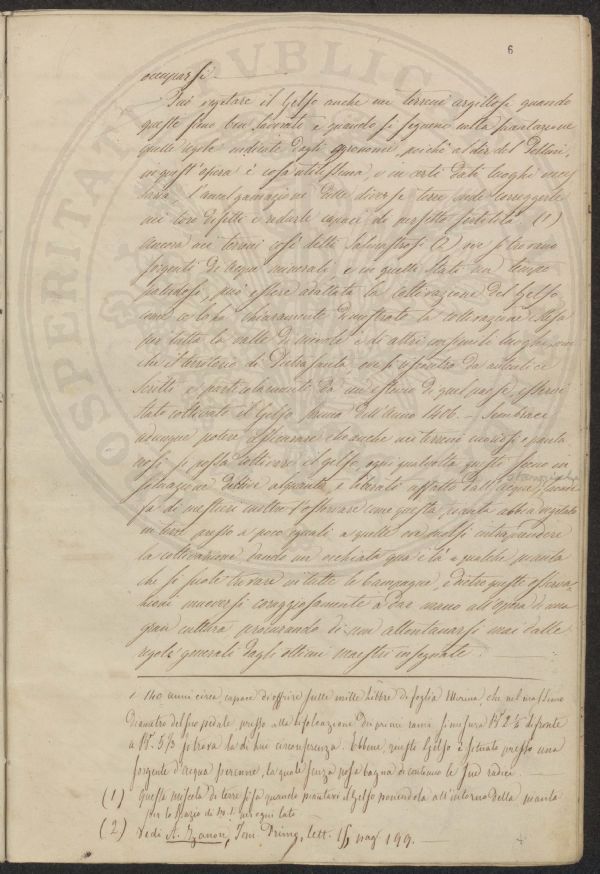 6
occuparsi.
Può vegetare il Gelso anche nei terreni argillosi quando
questi sieno ben lavorati e quando si seguano nella piantagione
quelle regole indicate dagli agronomi, poichè al dir del
in quest'opera è cosa utilissima, e in certi dati luoghi neces
saria l'amalgamazione delle diverse terre onde correggerle
nei loro difetti e ridurle capaci di perfetta fertilità (1)
ancora nei terreni così detti Salmastrosi (2) ove si trovano
sorgenti di acque minerali e in quelli stati un tempo
paludosi, può essere adattata la coltivazione del Gelso
come ce lo ha chiaramente dimostrato la coltivazione estesa
per tutta la valle di Nievole e di altri consimili luoghi, non
che il territorio di Pietrasanta ove si riscontra da autentiche
scritte e particolarmente da un estimo di quel paese, essere
stato coltivato il Gelso prima dell'anno 1406. - Sembraci
adunque potere assicurare che anche nei terreni cuorosi e panta
nosi si possa coltivare il gelso, ogni qualvolta questi sieno in
situazione elevati alquanto e liberati affatto dall'acqua stampinata,
fa di mestieri inoltre osservare come questa pianta abbia vegetato
in terre presso a poco eguali a quelle ove vuolsi intraprendere
la coltivazione dando un'occhiata qua e là a qualche pianta
che si suole trovare in tutte le Campagne, e dietro queste osserva-
zioni muoversi coraggiosamente a dar mano all'opera di una
gran cultura procurando di non allontanarsi mai dalle
regole generali dagli ottimi maestri insegnate.
140 anni circa, capace di offrire sulle mille Libbre di foglia Morina, che nel massimo
Diametro del suo pedale presso alla biforcazione dei primi rami si misura Bª 2 ¼ é fronte
a Bª 5⅓ si trova la di lui circonferenza. Ebbene, questo Gelso è situato presso una
sorgente d'acqua perenne, la quale senza posa bagna di continuo le sue radici.
(1) Questa miscela di terre si fa quando piantasi il Gelso ponendola all'intorno della pianta
per lo spazio di Bª 1. per ogni lato
(2) Vedi A. Zanon, Tom. Primo, lett. pag 199. -